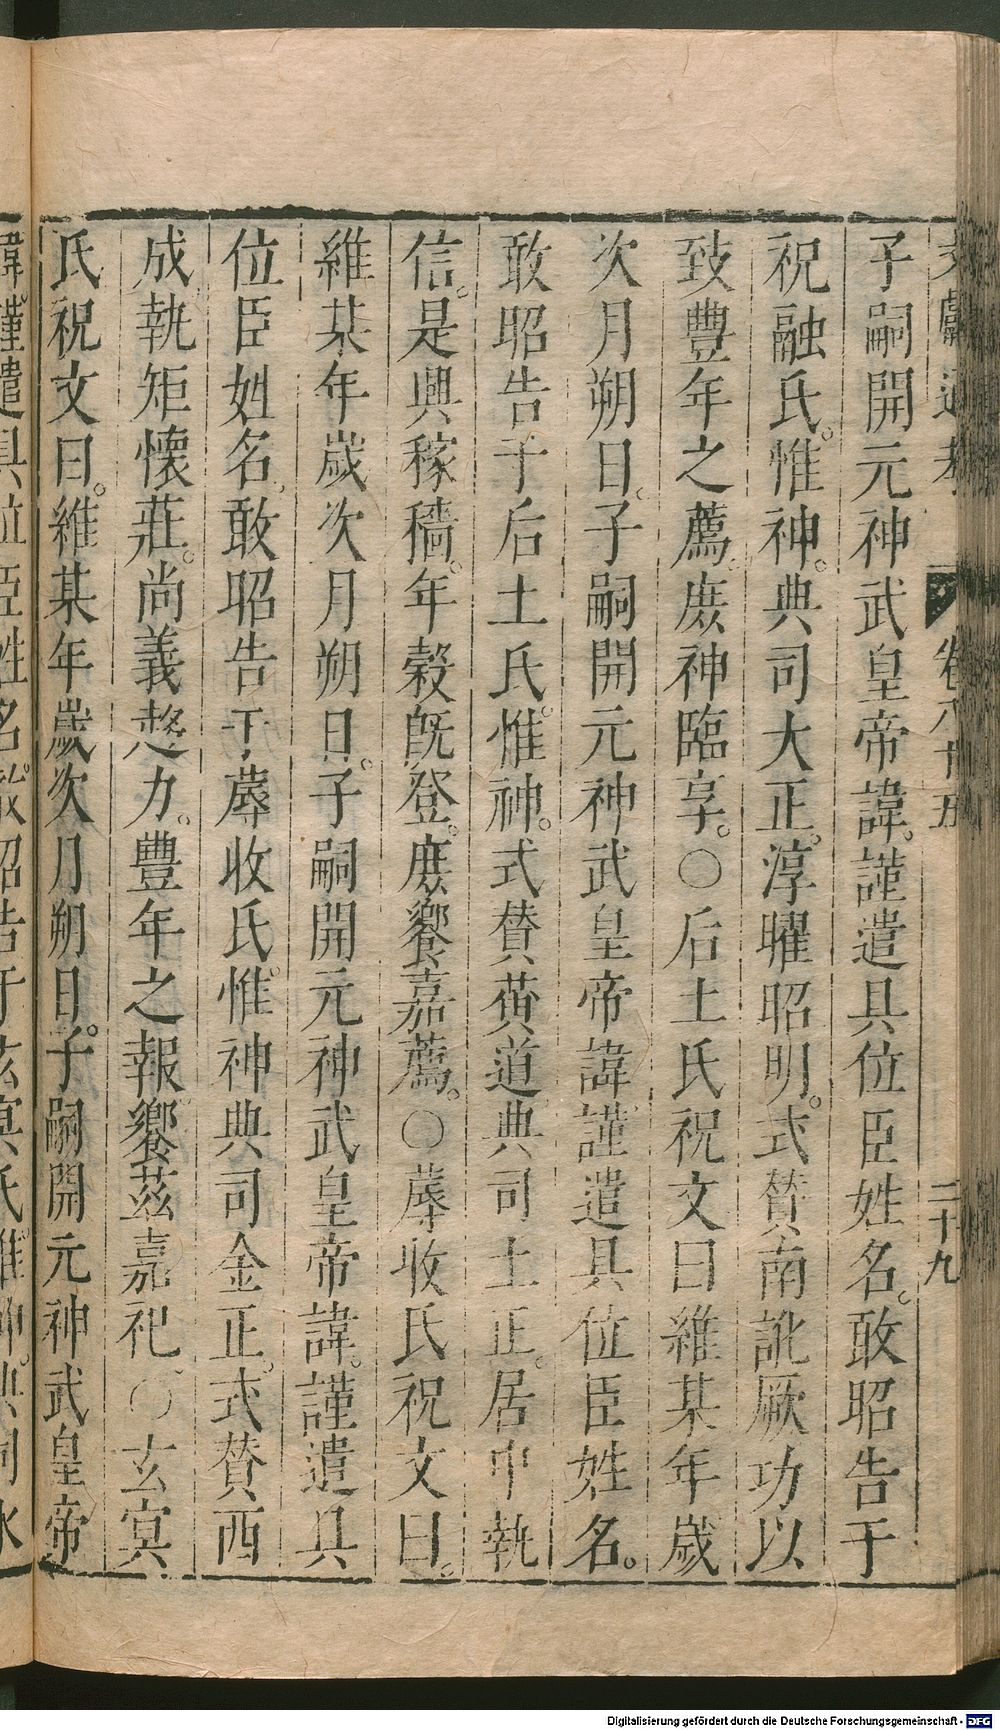 文獻通考 卷八十五 二十九
子嗣開元神武皇帝諱。謹遣具位臣姓名。敢昭告于
祝融氏。惟神。典司大正。淳曜昭明。式贊南訛厥功以
致豐年之薦。庶神臨享。○后土氏祝文曰維某年歲
次月朔日。子嗣開元神武皇帝諱謹遣具位臣姓名。
敢昭告于后土氏。惟神。式贊黃道典司土正。居中執
信。是興稼穡。年穀既登。庶饗嘉薦。○蓐收氏祝文曰。
維某年歲次月朔日。子嗣開元神武皇帝諱。謹遣具
位臣姓名。敢昭告于蓐收氏。惟神典司金正。式贊西
成。執矩懷莊。尚義趍力。豐年之報饗茲嘉祀。○玄冥
氏祝文曰。維某年歲次月朔日。子嗣開元神武皇帝
諱。謹遣具位臣姓名。敢昭告于玄冥氏。惟神。典司水
Digitalisierung gefördert durch die Deutsche Forschungsgemeinschaft - DFG